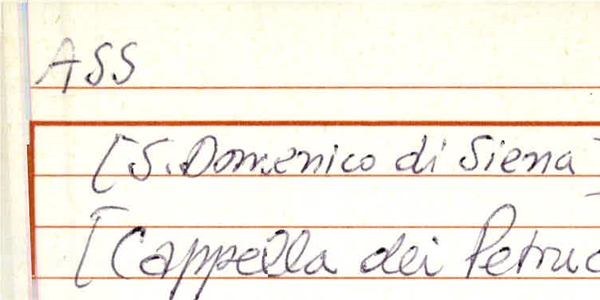 ASS
[S. Domenico di Siena]
[Cappella dei Petruc